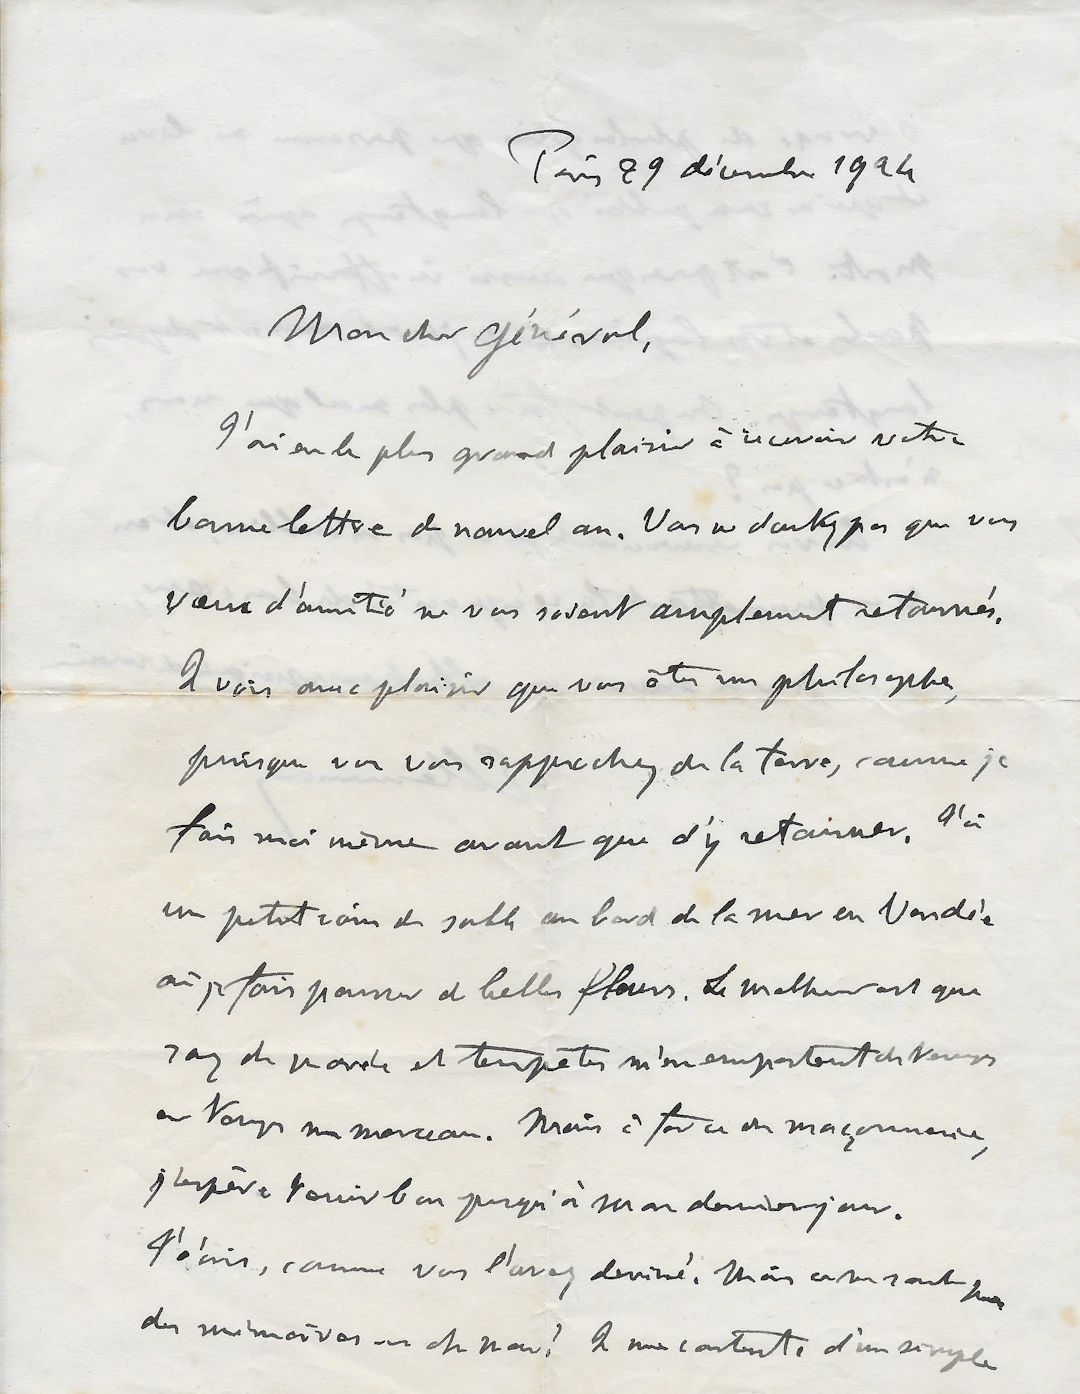 Paris 29 décembre 1924
Mon cher Général,
J'ai eu le plus grand plaisir à recevoir votre
bonne lettre de nouvel an. Vous ne doutez pas que vos
vœux d'amitié ne vous soient amplement retournés.
Je vois avec plaisir que vous êtes un philosophe,
puisque vous vous rapprochez de la terre, comme je
fais moi même avant que d'y retourner. J'ai
un petit coin de sable au bord de la mer en Vendée
où je fais pousser de belles fleurs. Le malheur est que
raz de marée et tempêtes m'en emportent de temps
en temps un morceau. Mais à force de maçonnerie,
j'espère tenir bon jusqu'à mon dernier jour.
J'écris, comme vous l'avez deviné. Mais ce ne sont pas
des mémoires oh non! Je me contente d'un simple